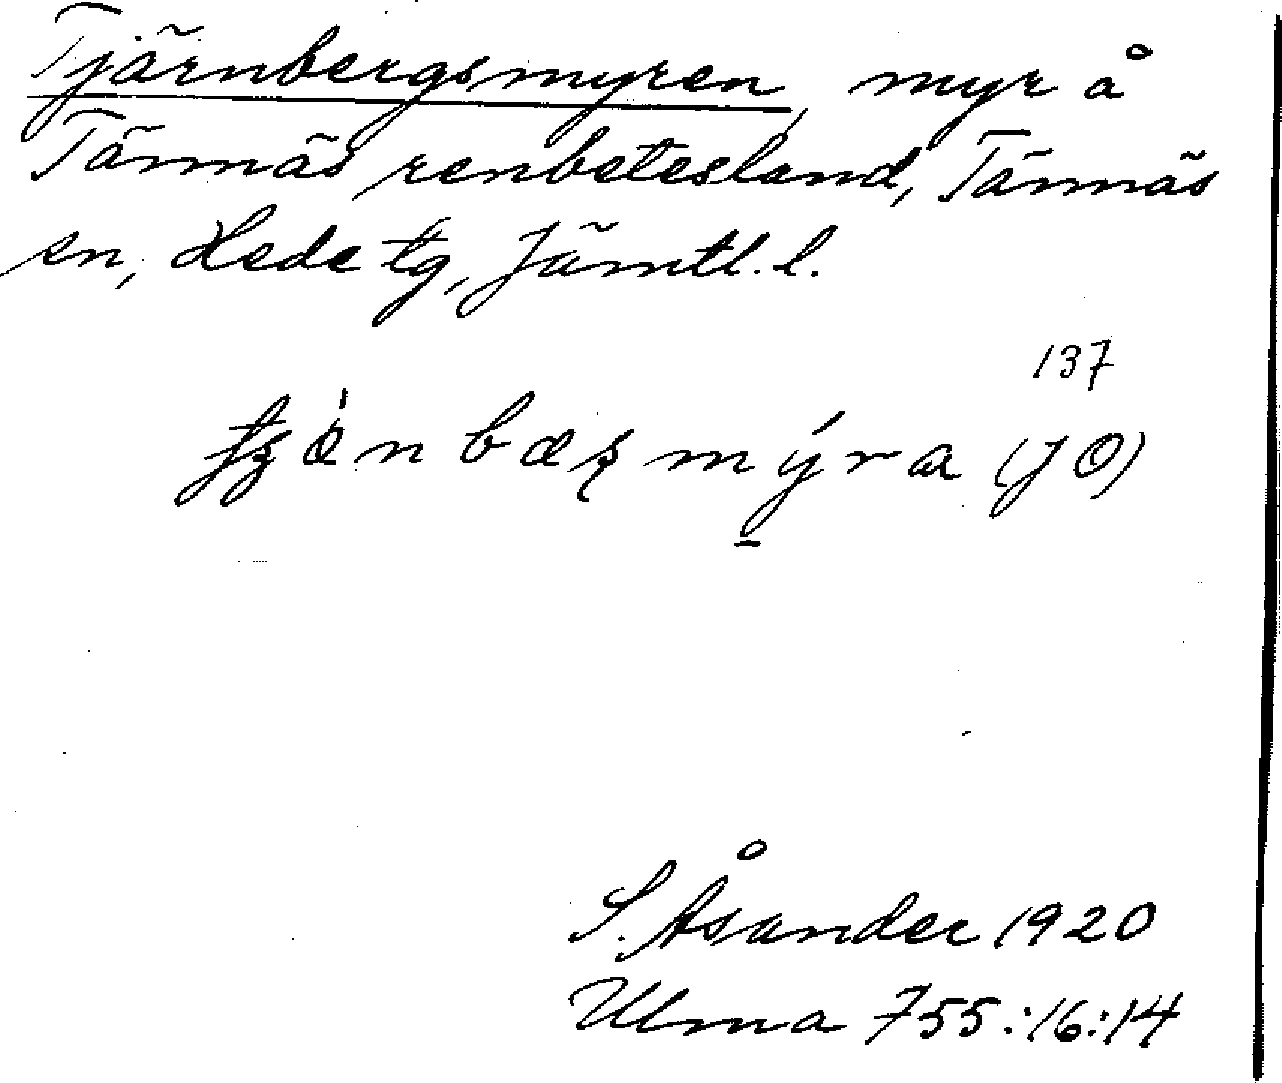 Tjärnbergsmyren, myr å
Tännäs renbetesland, Tännäs
sn, Hede tg, Jämtl. l.
137
mýra (JO)
S. Åsander 1920
Ulma 755:16:14